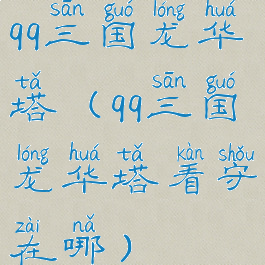 sān guó lóng huá
99三国龙华
tǎ sān guó
塔（99三国
lóng huá tǎ kàn shǒu
龙华塔看守
zài nǎ
在哪）